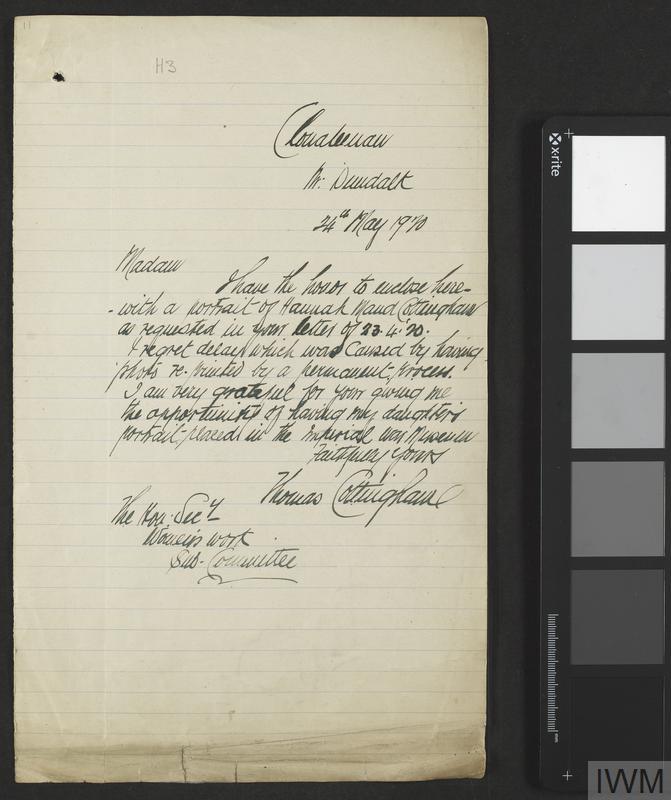 11
H3
Clonaleenan
Nr. Dundalk
24th May 1920
Madam
I have the honor to enclose here-
-with a portrait of Hannah Maud Cottingham
as requested in your letter of 23.4.'20.
I regret delay which was caused by having
photo re-printed by a permanent process.
I am very grateful for your giving me
the opportunity of having my daughter's
portrait placed in the Imperial War Museum
Faithfully Yours
Thomas Cottingham
The Hon. Secy
Women's work
Sub-Committee
x-rite
mm
IWM